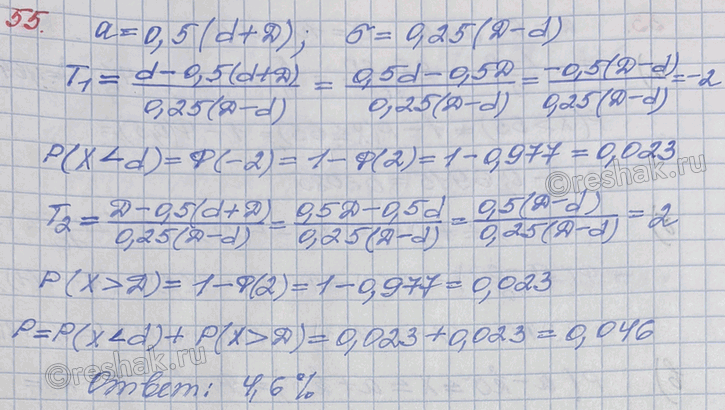 55.
a = 0,5(d+D); σ = 0,25(D-d)
T₁ = d-0,5(d+D) / 0,25(D-d) = 0,5d-0,5D / 0,25(D-d) = -0,5(D-d) / 0,25(D-d) = -2
P(X<d) = Φ(-2) = 1-Φ(2) = 1-0,977 = 0,023
T₂ = D-0,5(d+D) / 0,25(D-d) = 0,5D-0,5d / 0,25(D-d) = 0,5(D-d) / 0,25(D-d) = 2
P(X>D) = 1-Φ(2) = 1-0,977 = 0,023
P = P(X<d) + P(X>D) = 0,023 + 0,023 = 0,046
Ответ: 4,6%
©reshak.ru